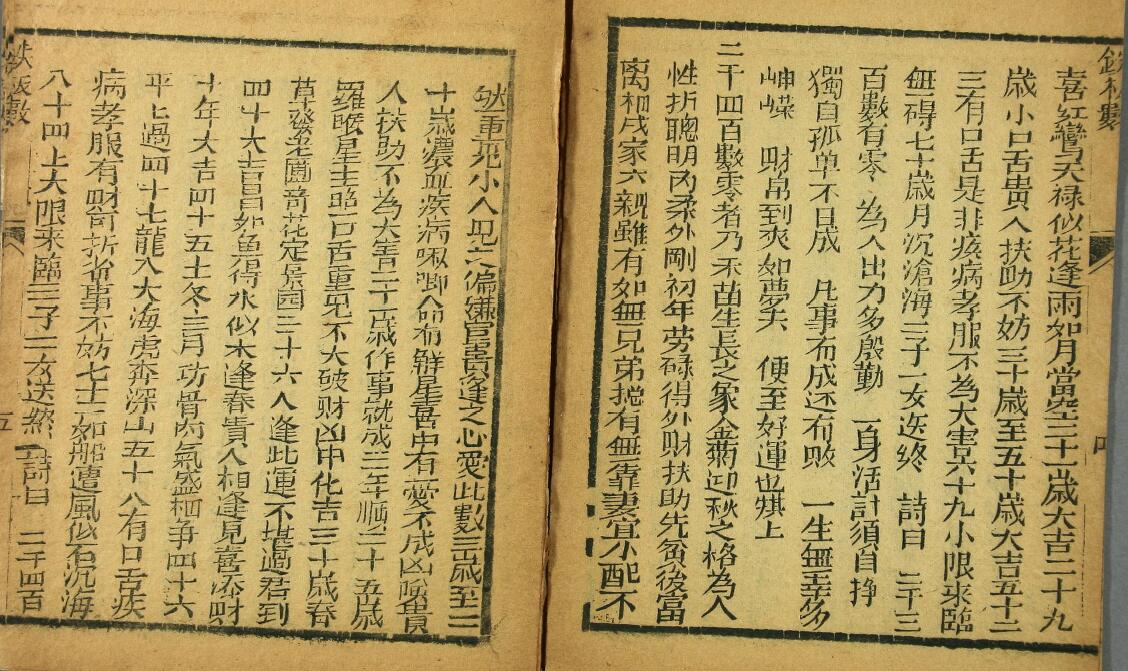 喜紅鸞天禄似花逢雨如月當空三十一歲大吉二十九
歲小口舌貴人扶助不妨三十歲至五十歲大吉五十二
三有口舌是非疾病孝服不為大害六十九小限來臨
無碍七十歲月沉滄海三子一女送終 詩曰 二千三
百數有零 為人出力多殷勤 一身活計須自挣
獨自孤单不日成 凡事布成还布敗 一生無幸多
崎嶸 財帛到爽如夢矣 便至好運也
二千四百數零者乃禾苗生長之象金菊迎秋之格為人
性折聰明内柔外剛初年劳碌得外財扶助先貧後富
离祖成家六親雖有如無兄弟搃有無靠妻宜小配不
然重見小人見六偏嫌官貴逢之心愛此數三歲至二
十歲濃血疾病啾唧八命有觧星喜中有憂不成凶陰貴
人扶助不為大害二十歲作事就成三年順二十五歲
羅睺星主照口舌重見不大破財凶中化吉三十歲春
草發老園奇花定景园三十六人逢此運不堪過君到
四十大吉昌如魚得水似木逢春貴人相逢見喜添財
十年大吉四十五十冬三月功骨肉氣盛相争四十六
平上過四十七龍入大海虎奔深山五十八有口舌疾
病孝服有財可折省事不妨七十二如船遭風似石沉海
八十四上大限来臨三子二女送終 詩曰 二千四百
鉄板數
五